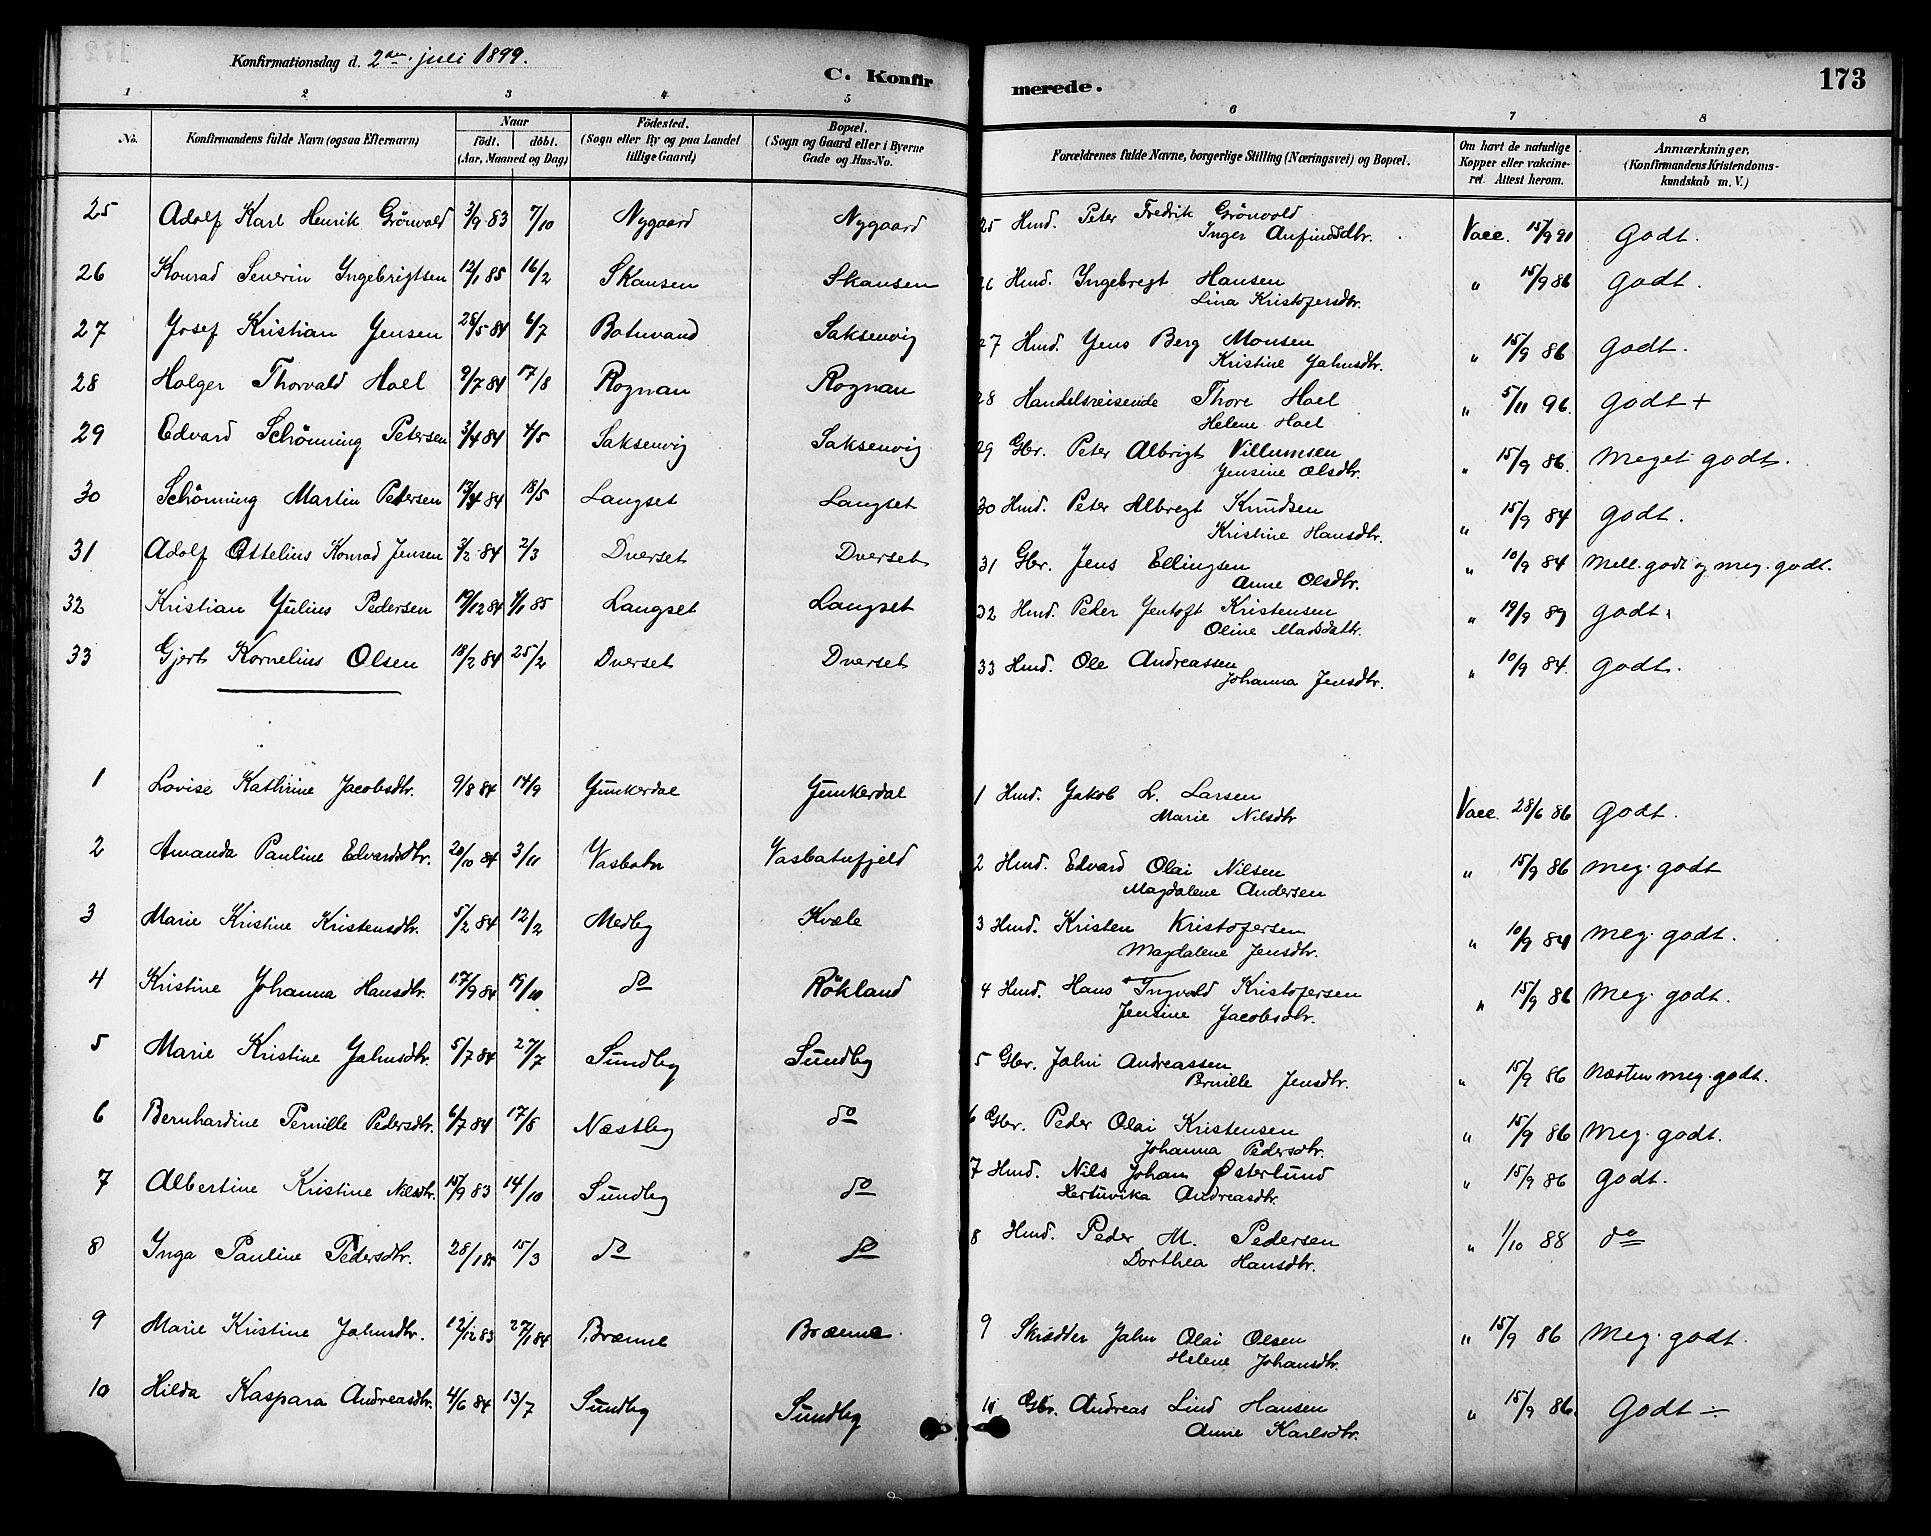 Konfirmationsdag d. 2den juli 1899.
C. Konfirmerede.
173
1 2 3 4 5 6 7 8
No. Konfirmandens fulde Navn (ogsaa Efternavn) Naar födt. döbt. (Aar, Maaned og Dag) Födested. (Sogn eller By og paa Landet tillige Gaard) Bopæl. (Sogn og Gaard eller i Byerne Gade og Hus-No. Forældrenes fulde Navne, borgerlige Stilling (Næringsvei) og Bopæl. Om havt de naturlige Kopper eller vakcineret. Attest herom. Anmærkninger, (Konfirmandens Kristendomskundskab m. V.)
25 Adolf Karl Henrik Grönvold 3/9 83 7/10 Nygaard Nygaard 25 Hmd. Peter Fredrik Grönvold Vacc. 15/9 91 Godt.
Inger Anfindsdtr.
26 Konrad Severin Ingebrigtsen 12/1 85 16/2 Skansen Skansen 26 Hmd. Ingebregt Hansen " 15/9 86 Godt.
Lina Kristofersdtr.
27 Josef Kristian Jensen 28/5 84 6/7 Botnvand Saksenvig 27 Hmd. Jens Berg Monsen " 15/9 86 Godt.
Kristine Jahnsdtr.
28 Holger Thorvald Hoel 9/7 84 17/8 Rognan Rognan 28 Handelsreisende Thore Hoel " 5/11 96. Godt +
Helene Hoel
29 Edvard Schönning Petersen 3/4 84 4/5 Saksenvig Saksenvig 29 Gbr. Peter Albrigt Villumsen " 15/9 86. Meget godt.
Jensine Olsdtr.
30 Schönning Martin Petersen 13/4 84 18/5 Langset Langset 30 Hmd. Peter Albregt Knudsen " 15/9 84 Godt.
Kristine Hansdtr.
31 Adolf Ottelius Konrad Jensen 3/2 84 2/3 Dverset Dverset 31 Gbr. Jens Ellingsen " 10/9 84 Mell. godt og meg. godt.
Anne Olsdtr.
32 Kristian Julius Pedersen 19/12 84 4/1 85 Langset Langset 32 Hmd. Peder Jentoft Kristensen " 19/9 89 Godt.
Oline Madsdatr.
33 Gjert Kornelius Olsen 18/2 84 25/2 Dverset Dverset 33 Hmd. Ole Andreassen " 10/9 84. Godt.
Johanna Jensdtr.
1 Lovise Kathrine Jacobsdtr. 9/8 84 14/9 Junkerdal Junkerdal 1 Hmd. Jakob L. Larsen Vacc. 28/6 86 Godt.
Marie Nilsdtr
2 Amanda Pauline Edvardsdtr. 20/10 84 3/11 Vasbotn Vasbatnfjeld 2 Hmd. Edvard Olai Nilsen " 15/9 86 meg. godt
Magdalene Andersen
3 Marie Kristine Kristensdtr. 5/2 84 12/2 Medby Kvæle 3 Hmd. Kristen Kristofersen " 10/9 84 Meg. godt.
Magdalene Jensdtr.
4 Kristine Johanna Hansdtr. 17/9 84 19/10 do Rökland 4 Hmd. Hans Ingvald Kristofersen " 15/9 86 Meg. godt.
Jensine Jacobsdtr.
5 Marie Kristine Jahnsdtr. 5/7 84 27/7 Sundby Sundby 5 Gbr. Jahn Andreassen " 15/9 86 Næsten meg. godt.
Pernille Jensdtr.
6 Bernhardine Pernille Pedersdtr. 6/7 84 17/8 Næstby do 6 Gbr. Peder Olai Kristensen " 15/9 86 Meg. godt.
Johanna Pedersdtr.
7 Albertine Kristine Nilsdtr. 15/9 83 14/10 Sundby do 7 Hmd. Nils Johan Østerlund " 15/9 86 Godt.
Andreasdtr.
8 Inga Pauline Pedersdtr. 28/1 85 15/3 do do 8 Hmd. Peder M. Pedersen " 1/10 88 do
Dorthea Hansdtr.
9 Marie Kristine Jahnsdtr. 12/12 83 27/1 84 Brænne Brænne. 9 Skrædder Jahn Olai Olsen " 15/9 86 Meg. godt.
Helene Johansdtr.
10 Hilda Kaspara Andreasdtr. 4/6 84 13/7 Sundby Sundby 10 Gbr. Andreas Lind Hansen " 15/9 86. Godt ÷
Anne Karlsdtr.